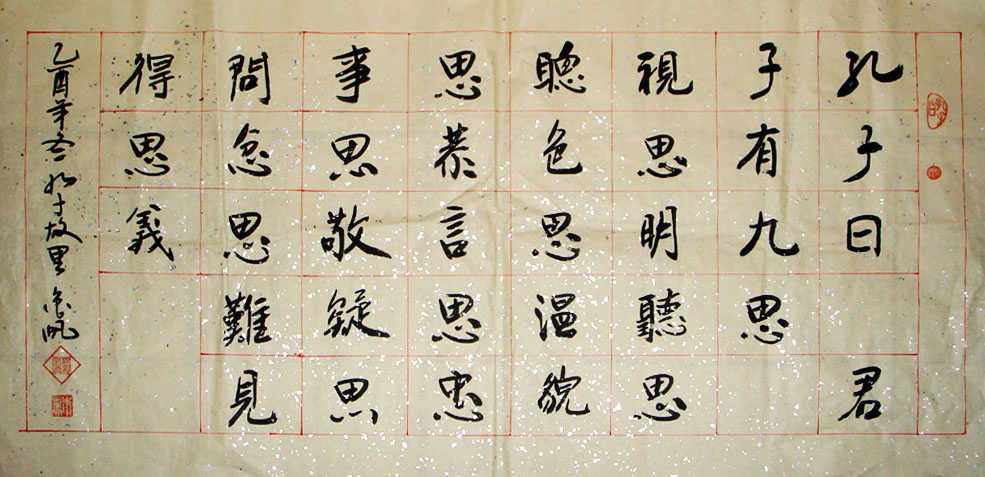 孔子曰 君
子有九思
視思明聽思
聰色思温貌
思恭言思忠
事思敬疑思
問忿思難見
得思義
乙酉年冬 孔子故里